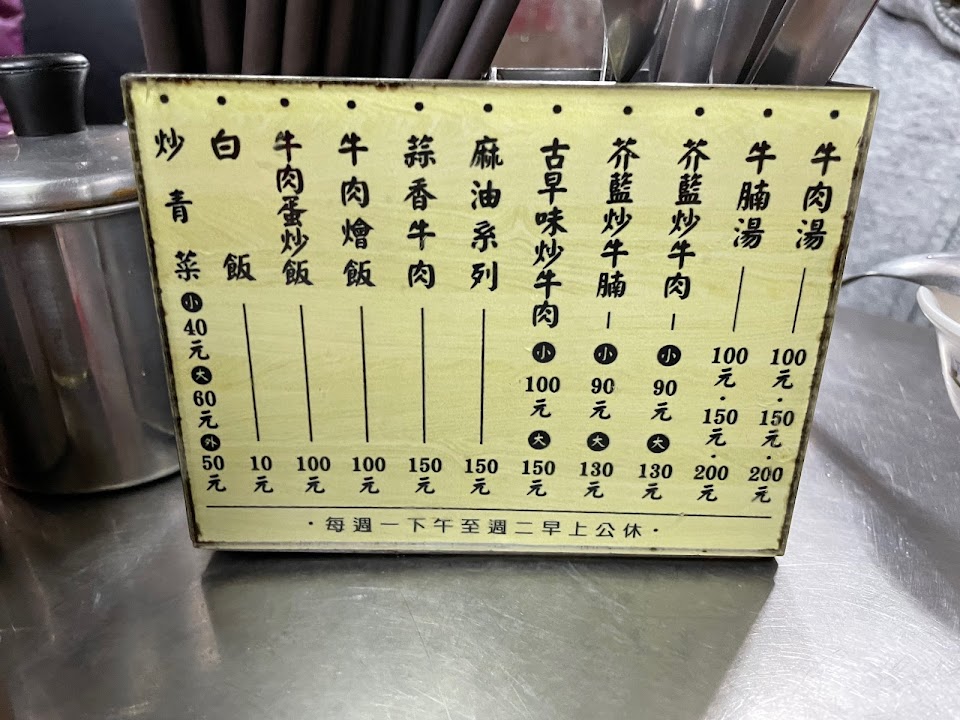 牛肉湯 100元・150元・200元
牛腩湯 100元・150元・200元
芥藍炒牛肉 小 90元 大 130元
芥藍炒牛腩 小 90元 大 130元
古早味炒牛肉 小 100元 大 150元
麻油系列 150元
蒜香牛肉 150元
牛肉燴飯 100元
牛肉蛋炒飯 100元
白飯 10元
炒青菜 小 40元 大 60元 外 50元
・每週一下午至週二早上公休・